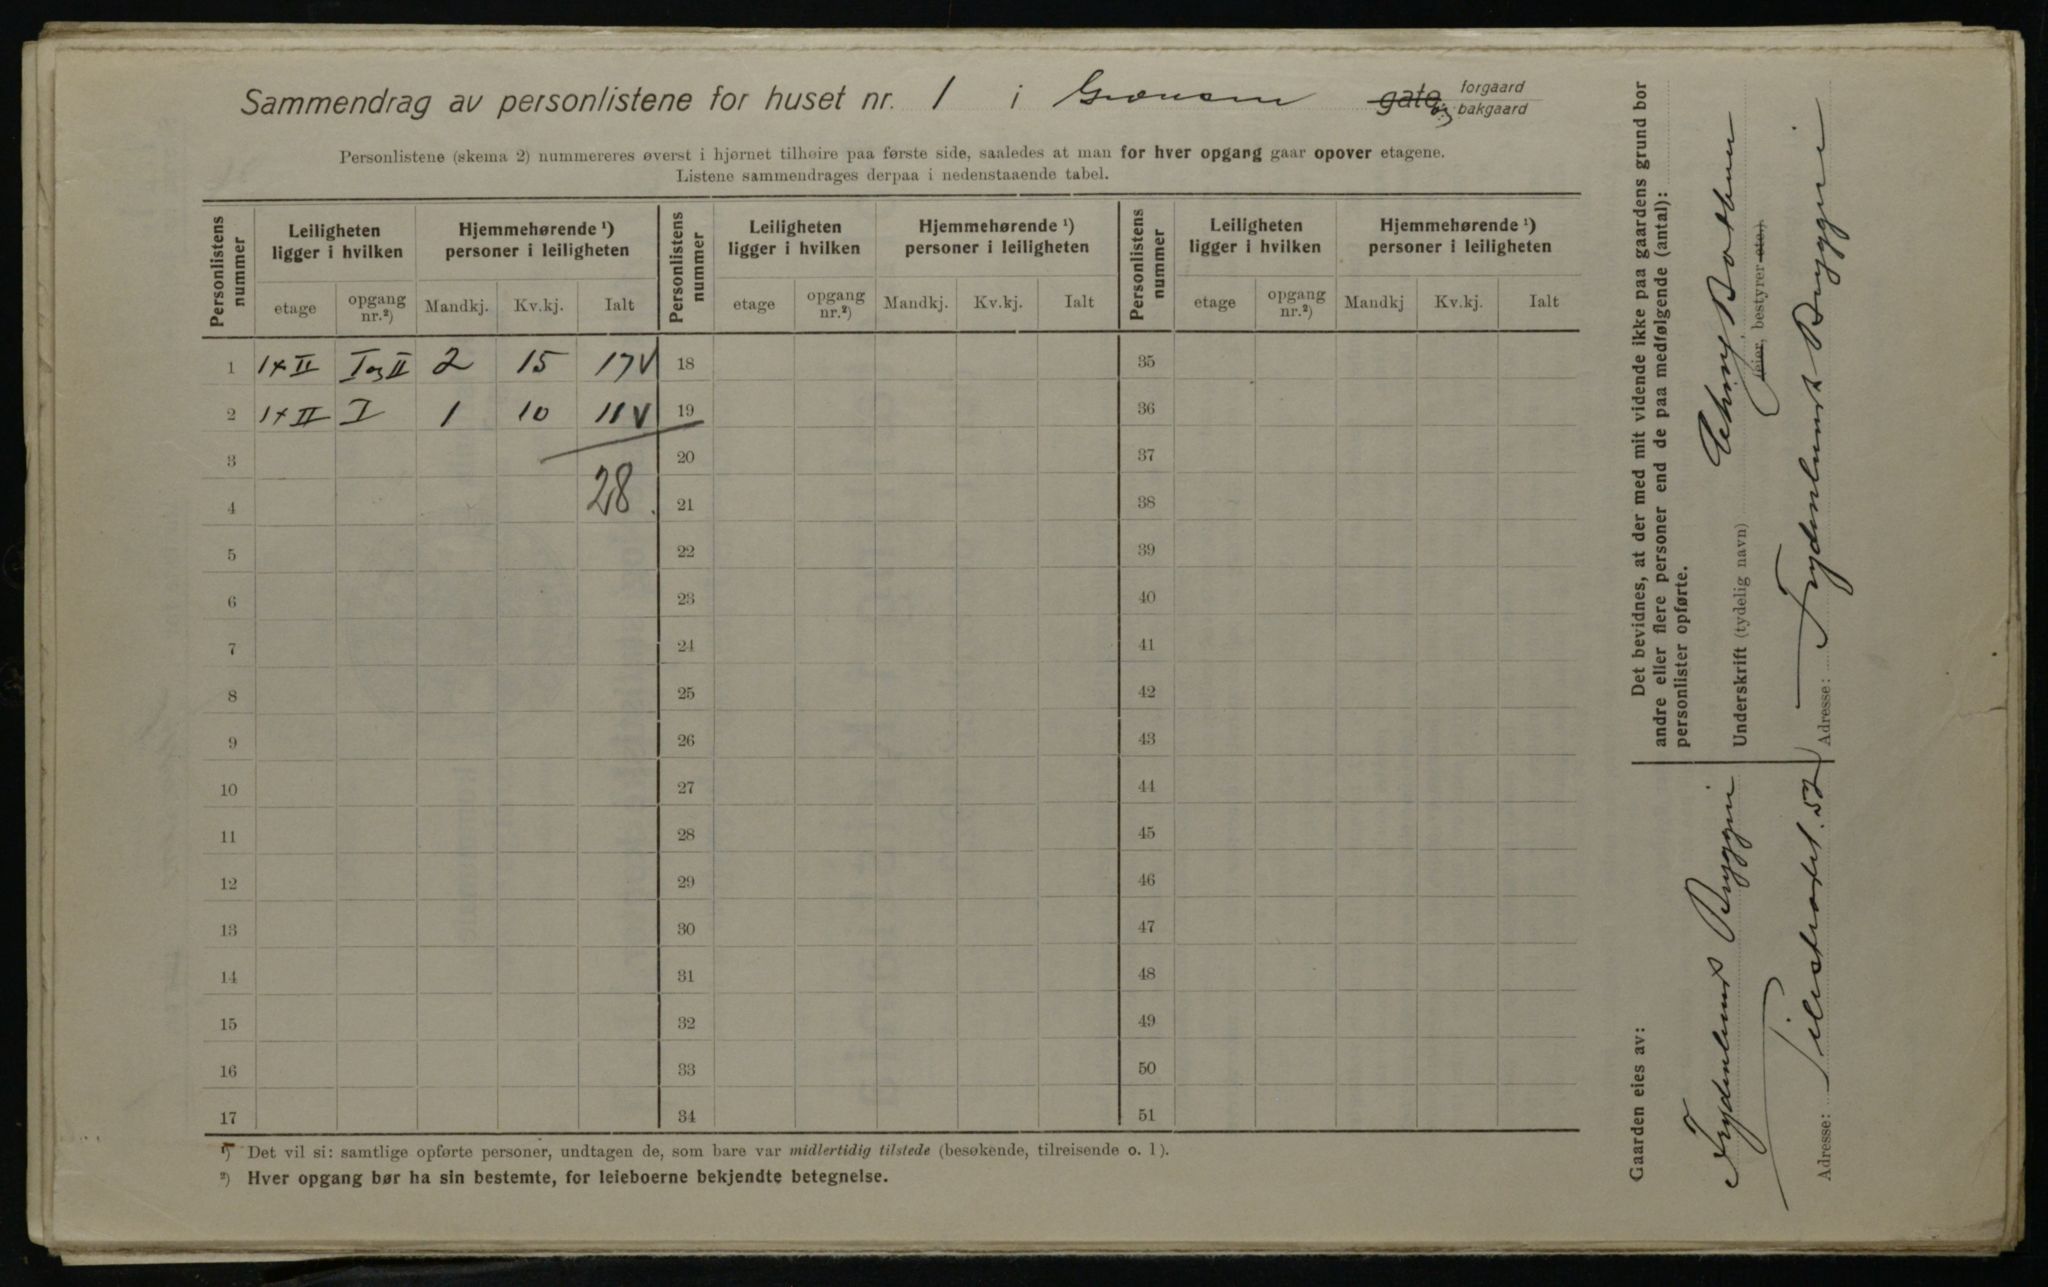 Sammendrag av personlistene for huset nr. 1 i Grænsen gate og forgaard bakgaard
Personlistene (skema 2) nummereres øverst i hjørnet tilhøire paa første side, saaledes at man for hver opgang gaar opover etagene.
Listene sammendrages derpaa i nedenstaaende tabel.
Personlistens nummer Leiligheten ligger i hvilken Hjemmehørende ¹) personer i leiligheten Personlistens nummer Leiligheten ligger i hvilken Hjemmehørende ¹) personer i leiligheten Personlistens nummer Leiligheten ligger i hvilken Hjemmehørende ¹) personer i leiligheten
etage opgang nr.²) Mandkj. Kv.kj. Ialt etage opgang nr.²) Mandkj. Kv.kj. Ialt etage opgang nr.²) Mandkj Kv.kj. Ialt
1 1+II I og II 2 15 17V 18 35
2 1+II I 1 10 11V 19 36
3 20 37
4 28 21 38
5 22 39
6 23 40
7 24 41
8 25 42
9 26 43
10 27 44
11 28 45
12 29 46
13 30 47
14 31 48
15 32 49
16 33 50
17 34 51
¹) Det vil si: samtlige opførte personer, undtagen de, som bare var midlertidig tilstede (besøkende, tilreisende o. l).
²) Hver opgang bør ha sin bestemte, for leieboerne bekjendte betegnelse.
Det bevidnes, at der med mit vidende ikke paa gaardens grund bor
andre eller flere personer end de paa medfølgende (antal):
personlister opførte.
Underskrift (tydelig navn)
(eier, bestyrer etc.).
Adresse: Frydenlunds Bryggeri
Gaarden eies av:
Frydenlunds Bryggeri
Adresse: Pilestrædet